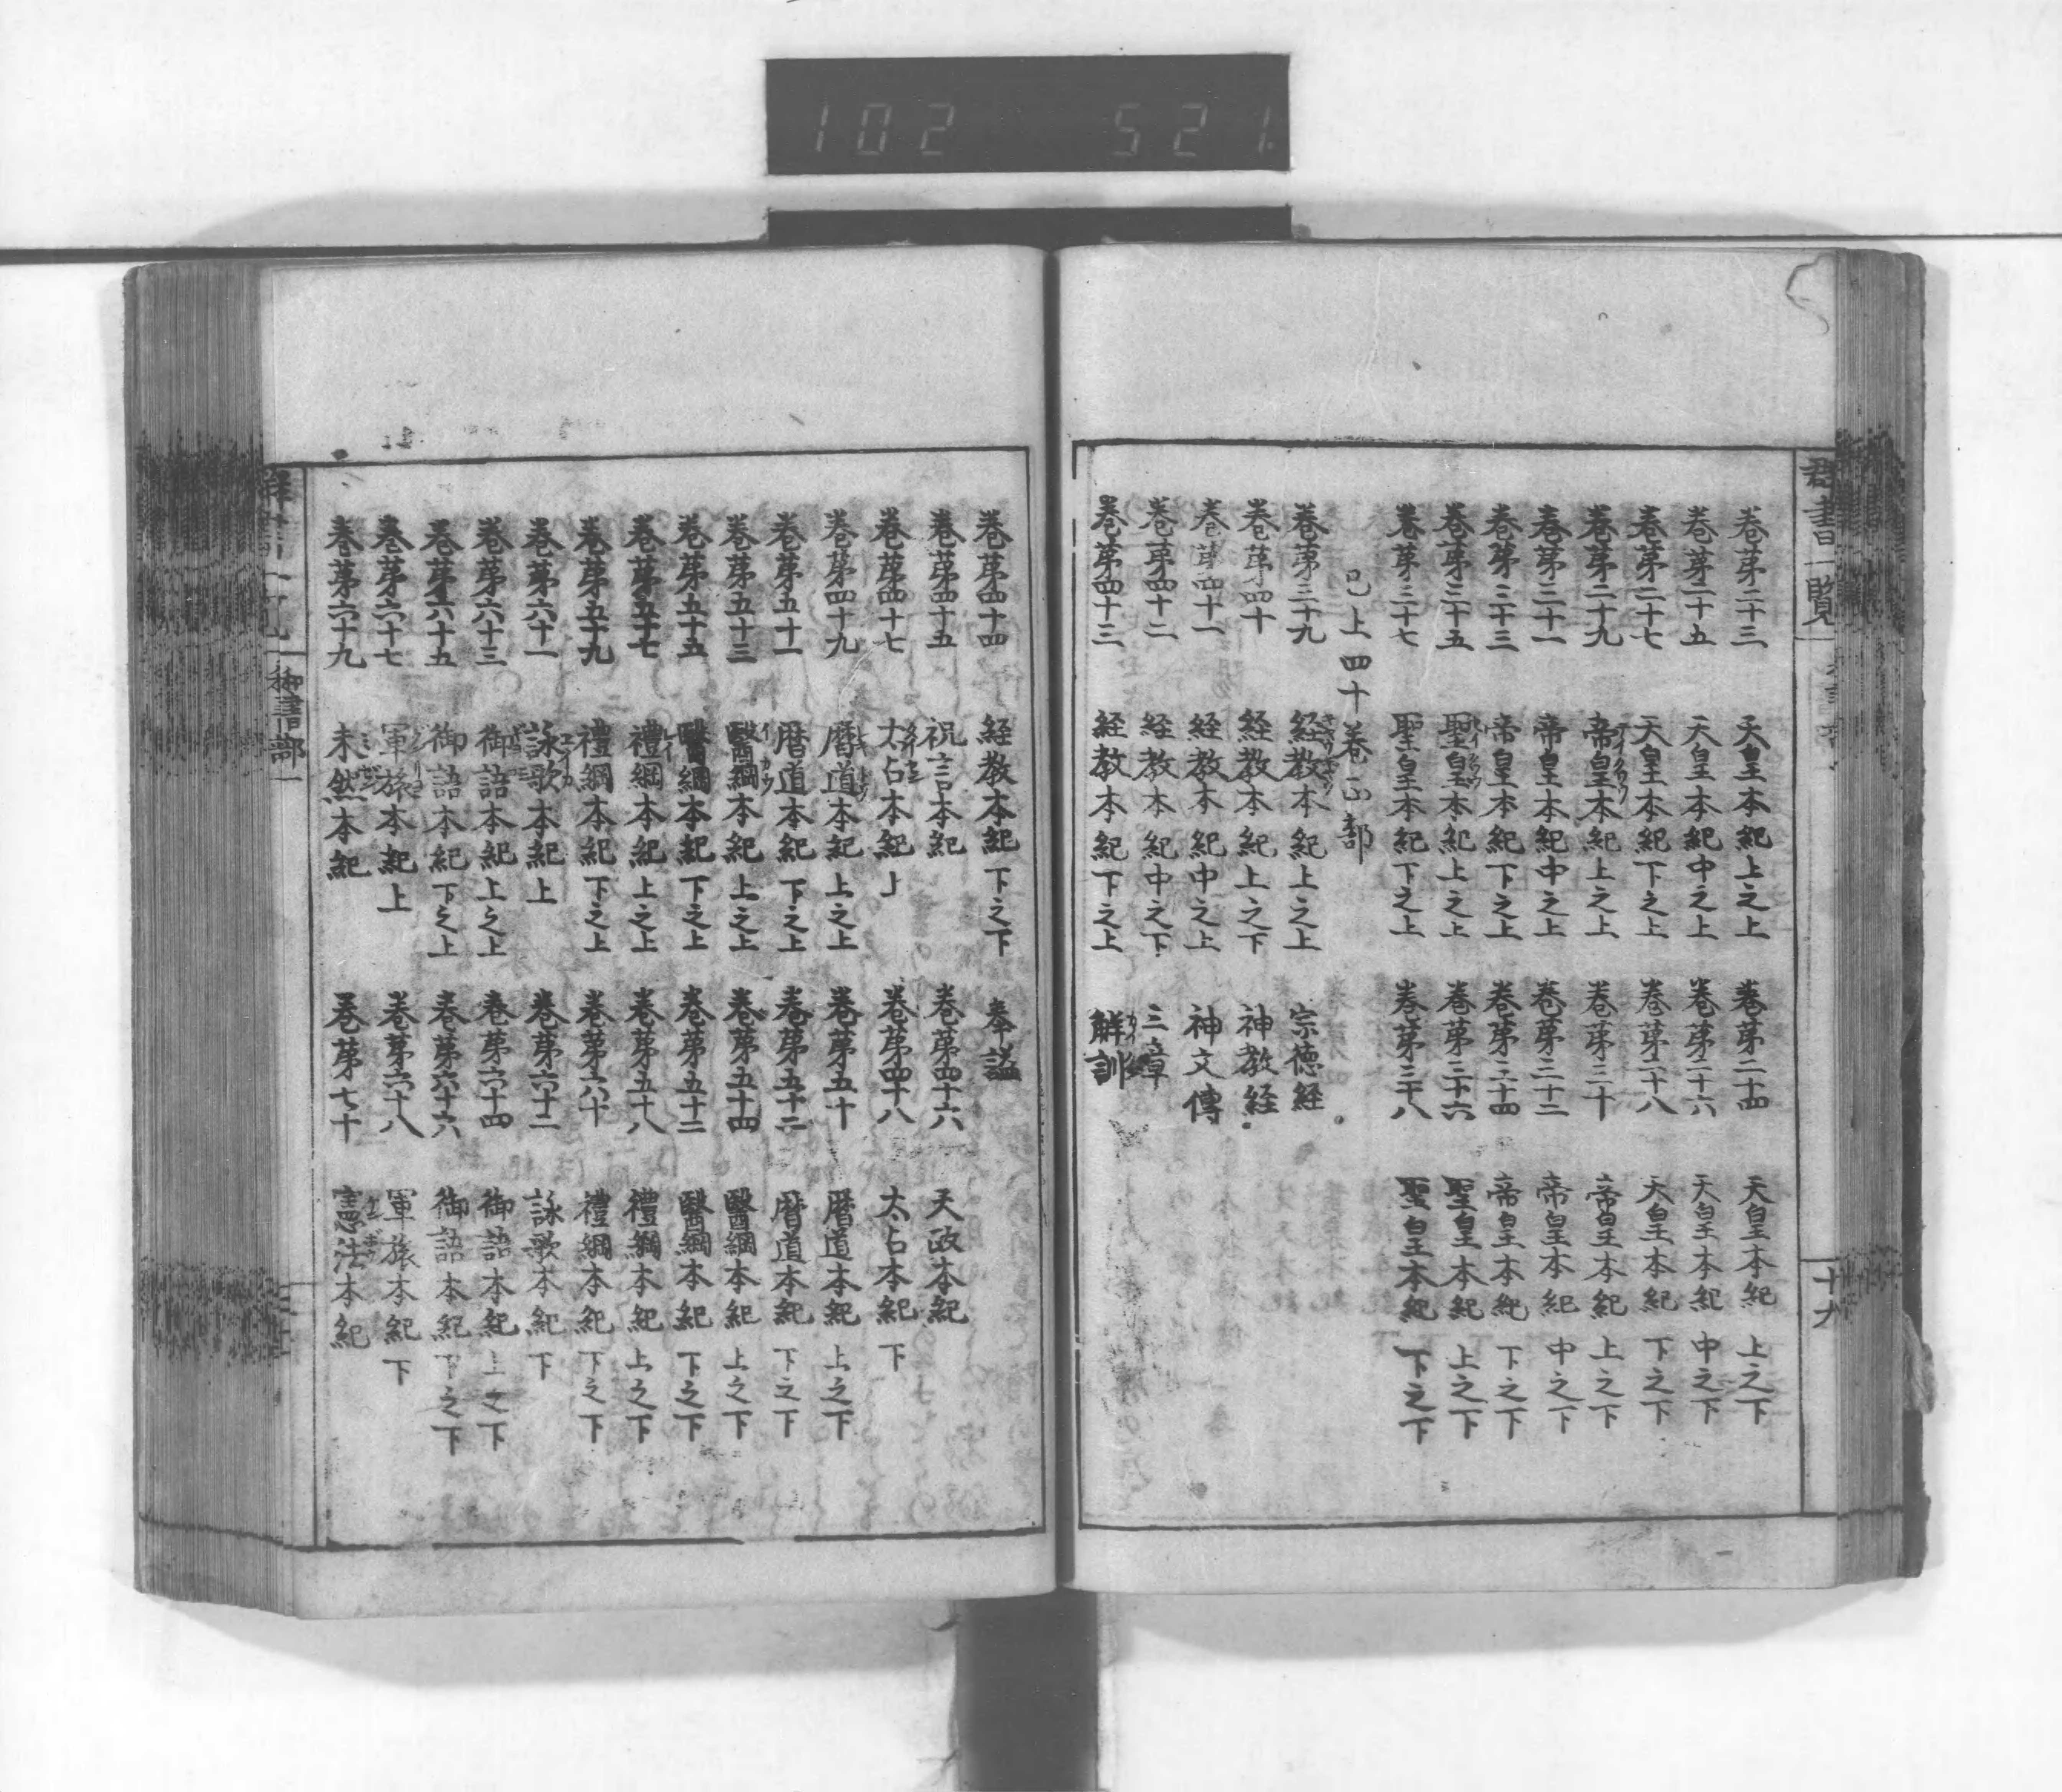 102 521
群書一覧
十九
巻第二十三 天皇本紀上之上 巻第二十四 天皇本紀上之下
巻第二十五 天皇本紀中之上 巻第二十六 天皇本紀中之下
巻第二十七 天皇本紀下之上 巻第二十八 天皇本紀下之下
巻第二十九 帝皇本紀上之上 巻第三十 帝皇本紀上之下
巻第三十一 帝皇本紀中之上 巻第三十二 帝皇本紀中之下
巻第三十三 帝皇本紀下之上 巻第三十四 帝皇本紀下之下
巻第三十五 聖皇本紀上之上 巻第三十六 聖皇本紀上之下
巻第三十七 聖皇本紀下之上 巻第三十八 聖皇本紀下之下
已上四十巻正部
巻第三十九 経教本紀上之上 宗徳経
巻第四十 経教本紀上之下 神教経
巻第四十一 経教本紀中之上 神文傳
巻第四十二 経教本紀中之下 三章
巻第四十三 経教本紀下之上 解訓
巻第四十四 経教本紀下之下 奉謚
巻第四十五 祝言本紀 巻第四十六 天政本紀
巻第四十七 太占本紀上 巻第四十八 太占本紀下
巻第四十九 暦道本紀上之上 巻第五十 暦道本紀上之下
巻第五十一 暦道本紀下之上 巻第五十二 暦道本紀下之下
巻第五十三 醫綱本紀上之上 巻第五十四 醫綱本紀上之下
巻第五十五 醫綱本紀下之上 巻第五十六 醫綱本紀下之下
巻第五十七 禮綱本紀上之上 巻第五十八 禮綱本紀上之下
巻第五十九 禮綱本紀下之上 巻第六十 禮綱本紀下之下
巻第六十一 詠歌本紀上 巻第六十二 詠歌本紀下
巻第六十三 御語本紀上之上 巻第六十四 御語本紀上之下
巻第六十五 御語本紀下之上 巻第六十六 御語本紀下之下
巻第六十七 軍旅本紀上 巻第六十八 軍旅本紀下
巻第六十九 未然本紀 巻第七十 憲法本紀